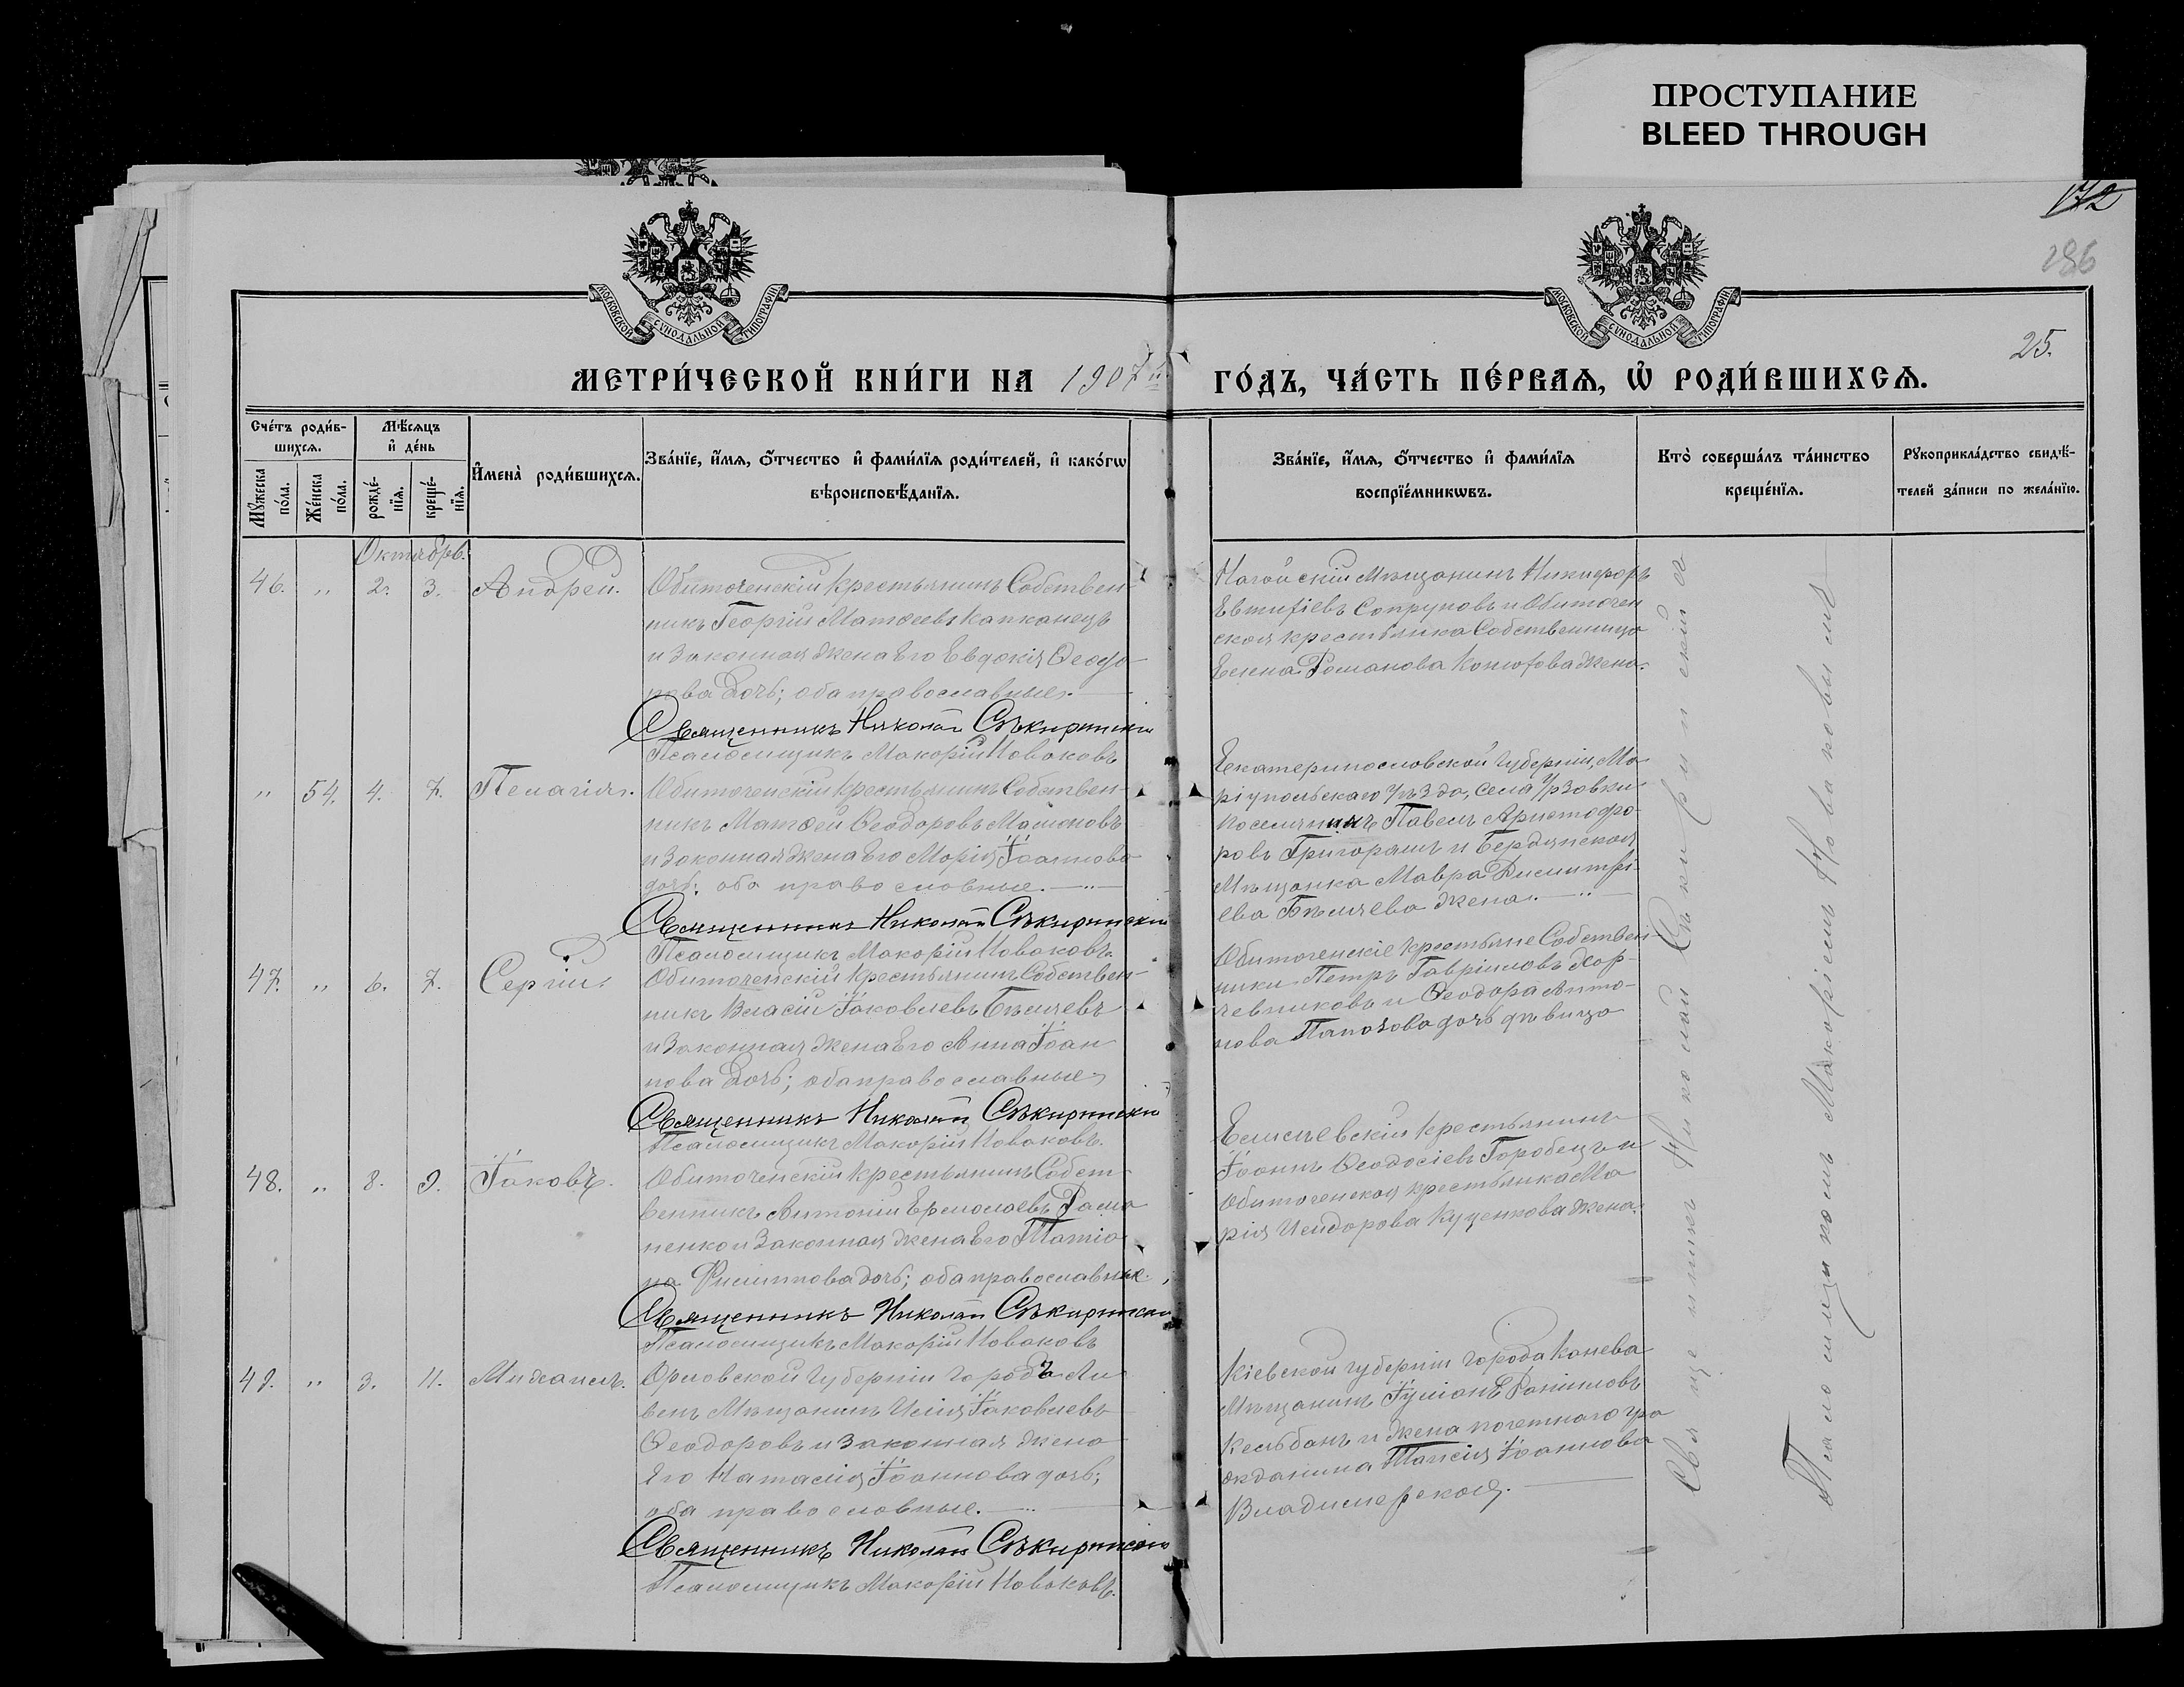 ПРОСТУПАНИЕ
BLEED THROUGH
172
186
25.
МОСКОВСКОЙ СУНОДАЛЬНОЙ ТИПОГРАФІИ
МОСКОВСКОЙ СУНОДАЛЬНОЙ ТИПОГРАФІИ
МЕТРИ́ЧЕСКОЙ КНИ́ГИ НА 1907й
ГО́ДЪ, ЧА́СТЬ ПЕ́РВАѦ, Ѡ РОДИ́ВШИХСѦ.
Сче́тъ роди́в-
шихсѧ.
Мꙋ́жеска по́ла.
Же́нска по́ла.
Мѣ́сѧцъ
и де́нь
рожде́-
нїѧ.
креще́-
нїѧ.
И҆мена̀ роди́вшихсѧ.
Зва́нїе, и҆́мѧ, ѻ҆́тчество и҆ фами́лїѧ роди́телей, и҆ како́гѡ
вѣроисповѣ́данїѧ.
Зва́нїе, и҆́мѧ, ѻ҆́тчество и҆ фами́лїѧ
воспрїе́мникѡвъ.
Кто̀ соверша́лъ та́инство
креще́нїѧ.
Рꙋкоприкла́дство свидѣ́-
телей за́писи по жела́нїю.
Октябрь.
46. " 2. 3. Андрей.
Обиточенскій крестьянинъ Собствен-
никъ Георгій Матѳеевъ Капканецъ
и законная жена его Евдокія Ѳеодо-
рова дочь; оба православные.
Священникъ Николай Сѣкиринскій
Псаломщикъ Макарій Новаковъ
Ногайскій мѣщанинъ Никифоръ
Евтифіевъ Сопруновъ и Обиточен
ская крестьянка Собственница
Елена Романова Конюхова жена.
" 54. 4. 7. Пелагія.
Обиточенскій крестьянинъ Собствен-
никъ Матѳей Ѳеодоровъ
и законная жена его Марія Іоаннова
дочь; оба православные.
Священникъ Николай Сѣкиринскій
Псаломщикъ Макарій Новаковъ.
Екатеринославской губерніи, Ма-
ріупольскаго уѣзда, села Урзовки
поселянинъ Павелъ Аристофо-
ровъ Григорашъ и Бердянская
мѣщанка Мавра Димитрі-
ева Бѣляева жена.
47. " 6. 7. Сергій.
Обиточенскій крестьянинъ Собствен-
никъ Власій Іаковлевъ Бѣляевъ
и законная жена его Анна Іоан
нова дочь; оба православные
Священникъ Николай Сѣкиринскій
Псаломщикъ Макарій Новаковъ.
Обиточенскіе крестьяне Собствен-
ники Петръ Гавріиловъ
и Ѳеодора Анто-
нова дочь дѣвица
48. " 8. 9. Іаковъ.
Обиточенскій крестьянинъ Собст-
венникъ Антоній Ермолаевъ Рома
ненко и законная жена его Татіа
на Филиппова дочь; оба православные.
Священникъ Николай Сѣкиринскій
Псаломщикъ Макарій Новаковъ
крестьянинъ
Іоаннъ Ѳеодосіевъ Горобецъ и
Обиточенская крестьянка Ма
рія Исидорова Куценкова жена.
49. " 3. 11. Михаилъ.
Орловской губерніи города Ли
венъ мѣщанинъ Илія Іаковлевъ
Ѳеодоровъ и законная жена
его Наталія Іоаннова дочь;
оба православные.
Священникъ Николай Сѣкиринскій
Псаломщикъ Макарій Новаковъ.
Кіевской губерніи города Канева
мѣщанинъ Іуліанъ
и жена почетнаго гра
жданина Таисія Іоаннова
Владимерская.
Священникъ Николай Сѣкиринскій съ
Псаломщикомъ Макаріемъ Новаковымъ